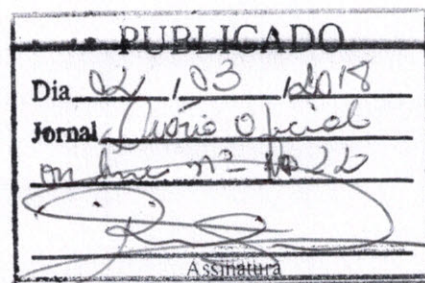 PUBLICADO
Dia 02 / 03 / 2018
Jornal Diário Oficial
on line nº 1022
Assinatura